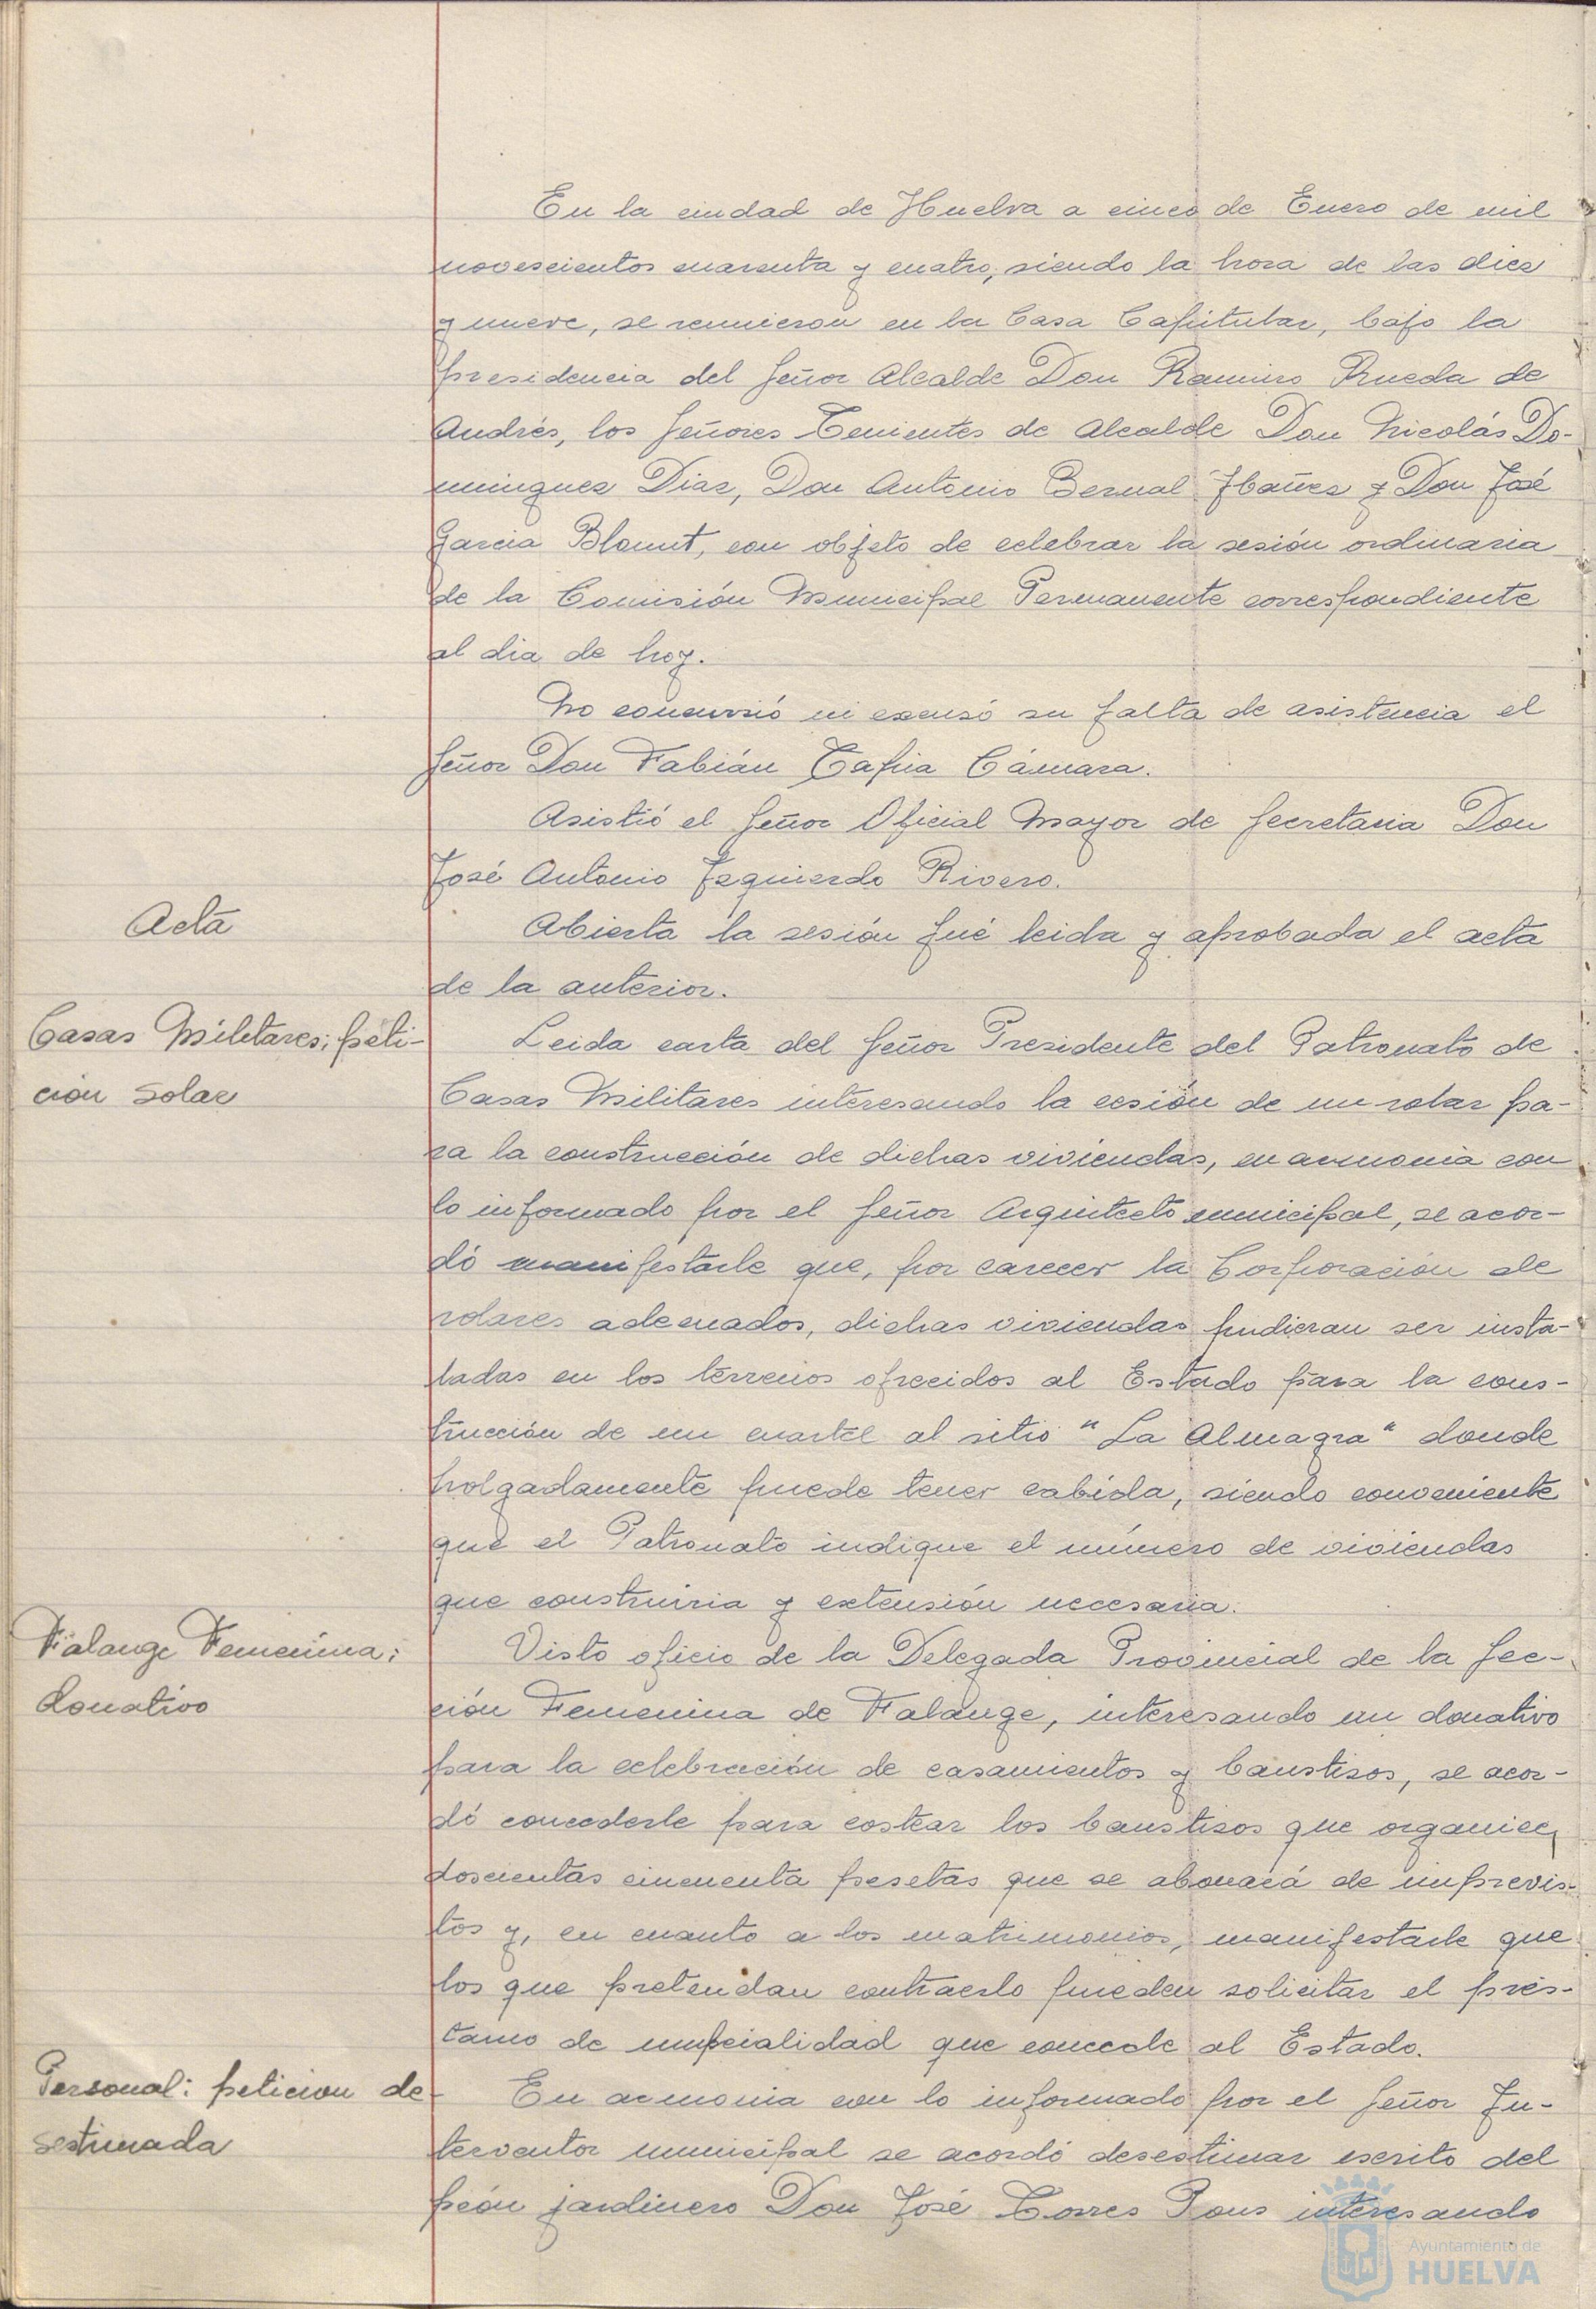 En la ciudad de Huelva a cinco de Enero de mil
novescientos cuarenta y cuatro, siendo la hora de las diez
y nueve, se reunieron en la Casa Capitular, bajo la
presidencia del Señor Alcalde Don Ramiro Rueda de
Andrés, los Señores Tenientes de Alcalde Don Nicolás Do-
minguez Diaz, Don Antonio Bernal Ibañez y Don José
Garcia Blount, con objeto de celebrar la sesión ordinaria
de la Comisión Municipal Permanente correspondiente
al dia de hoy.
No concurrió ni excusó su falta de asistencia el
Señor Don Fabián Tapia Cámara.
Asistió el Señor Oficial Mayor de Secretaria Don
José Antonio Izquierdo Rivero.
Acta
Abierta la sesión fué leida y aprobada el acta
de la anterior.
Casas Militares; peti-
ción solar
Leida carta del Señor Presidente del Patronato de
Casas Militares interesando la cesión de un solar pa-
ra la construcción de dichas viviendas, en armonia con
lo informado por el Señor Arquitecto municipal, se acor-
dó manifestarle que, por carecer la Corporación de
solares adecuados, dichas viviendas pudieran ser insta-
ladas en los terrenos ofrecidos al Estado para la cons-
trucción de un cuartel al sitio "La Almagra" donde
holgadamente puede tener cabida, siendo conveniente
que el Patronato indique el número de viviendas
que construiria y extensión necesaria.
Falange Femenina;
donativo
Visto oficio de la Delegada Provincial de la Sec-
ción Femenina de Falange, interesando un donativo
para la celebración de casamientos y baustisos, se acor-
dó concederle para costear los baustisos que organice,
doscientas cincuenta pesetas que se abonará de imprevis-
tos y, en cuanto a los matrimonios, manifestarle que
los que pretendan contraerlo pueden solicitar el prés-
tamo de nupcialidad que concede al Estado.
Personal: peticion de
sestimada
En armonia con lo informado por el Señor In-
terventor municipal se acordó desestimar escrito del
peón jardinero Don José Torres Pous interesando
Ayuntamiento de
HUELVA